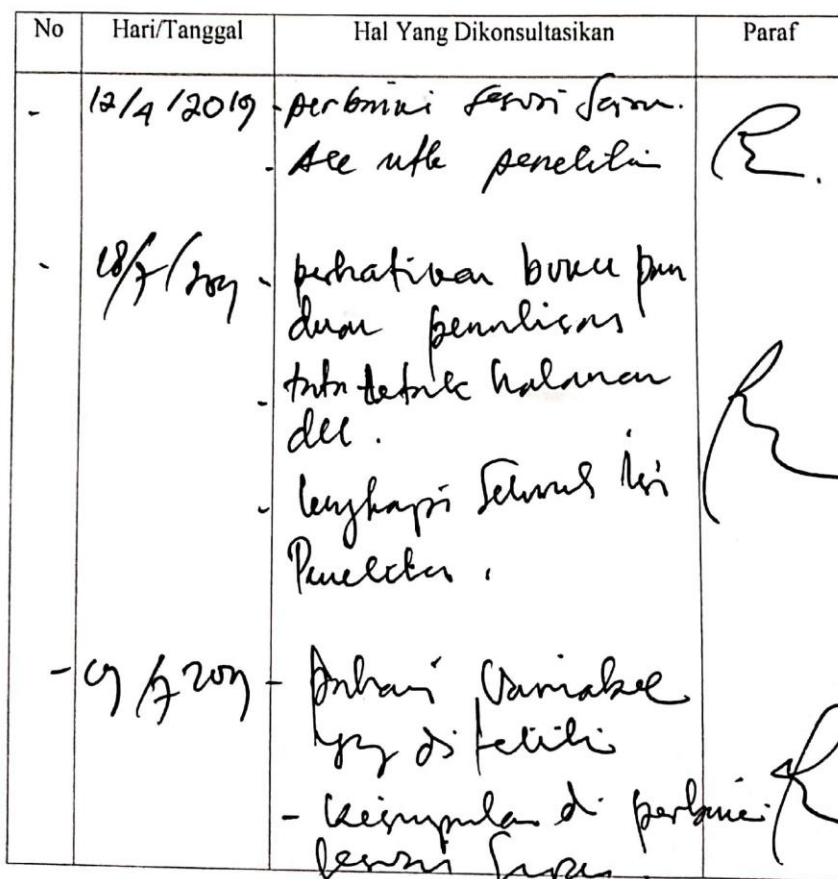 No Hari/Tanggal Hal Yang Dikonsultasikan Paraf
- 12/4/2019 - perbaiki sesuai saran.
- Acc utk penelitian
- 18/7/2019 - perhatikan buku pan
duan penulisan
- tata letak halaman
dll.
- lengkapi seluruh isi
Penelitian.
- 19/7 2019 - variabel
yg di teliti
- kesimpulan di perbaiki
sesuai saran.